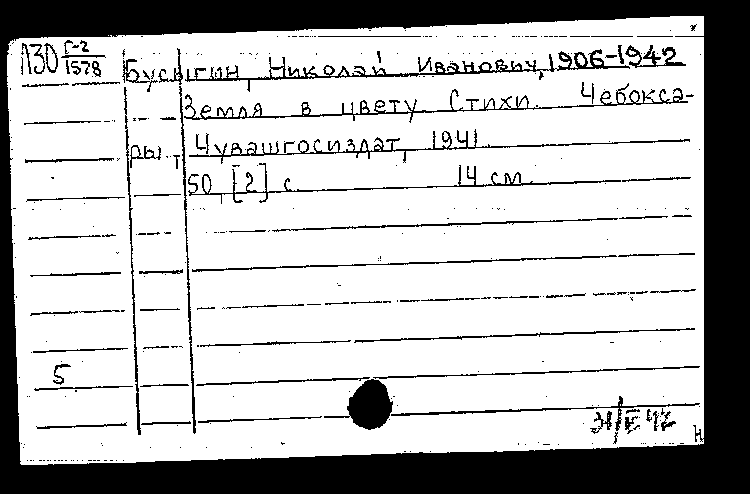 Л30 Г-2
1578
Бусыгин, Николай Иванович, 1906-1942
Земля в цвету. Стихи. Чебокса-
ры, Чувашгосиздат, 1941.
50, [2] с. 14 см.
5
Н